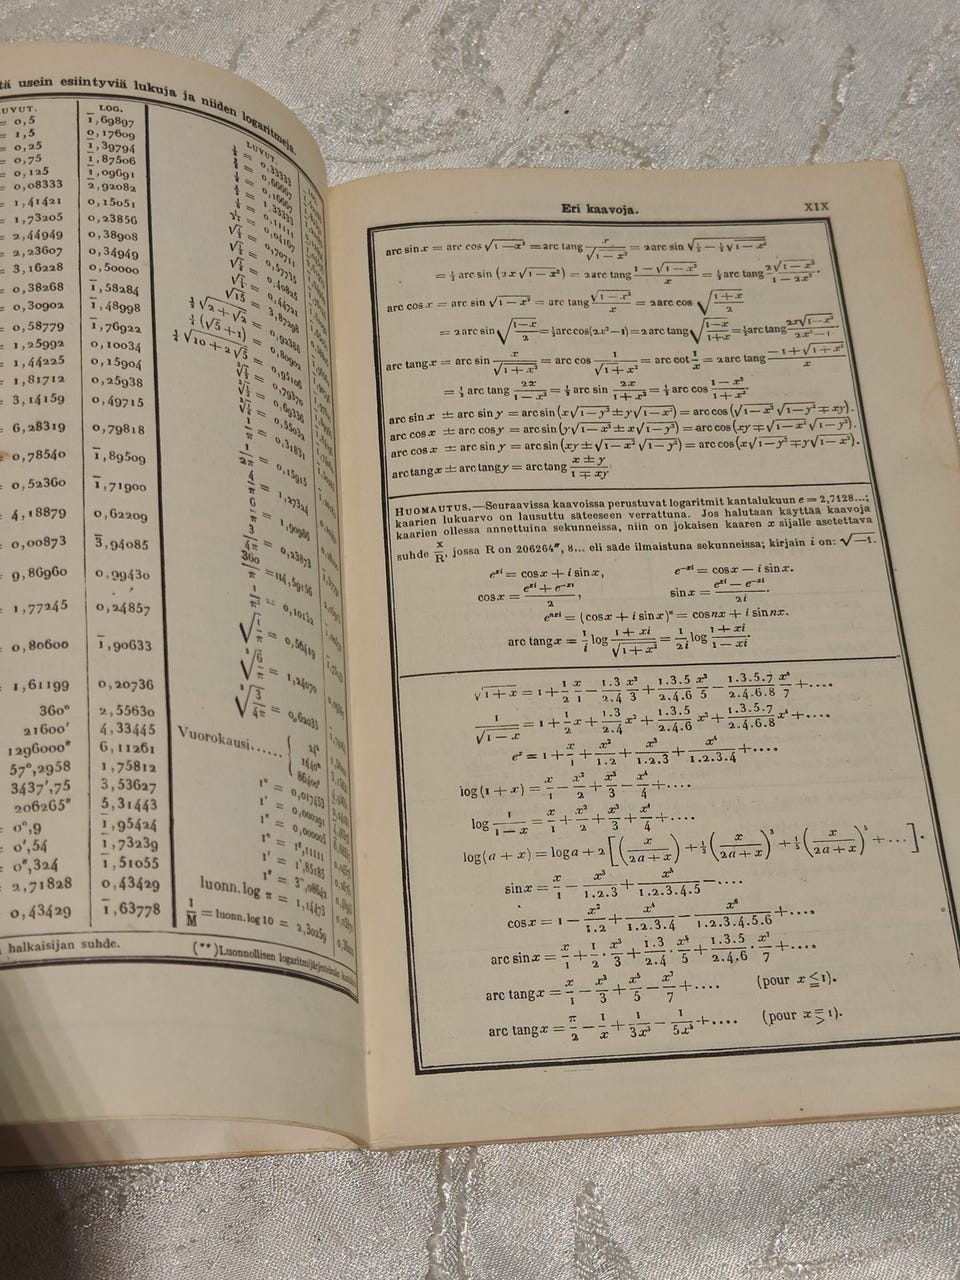 usein esiintyviä lukuja ja niiden logaritmeja.
LOG.
= 0,5 1̅,69897
= 1,5 0,17609
= 0,25 1̅,39794
= 0,75 1̅,87506
= 0,125 1̅,09691
= 0,08333 2̅,92082
= 1,41421 0,15051
= 1,73205 0,23856
= 2,44949 0,38908
= 2,23607 0,34949
= 3,16228 0,50000
= 0,38268 1̅,58284
= 0,30902 1̅,48998
= 0,58779 1̅,76922
= 1,25992 0,10034
= 1,44225 0,15904
= 1,81712 0,25938
= 3,14159 0,49715
= 6,28319 0,79818
= 0,78540 1̅,89509
= 0,52360 1̅,71900
= 4,18879 0,62209
= 0,00873 3̅,94085
= 9,86960 0,99430
= 1,77245 0,24857
= 0,80600 1̅,90633
= 1,61199 0,20736
360° 2,55630
21600' 4,33445
1296000" 6,11261
57°,2958 1,75812
3437',75 3,53627
206265" 5,31443
= 0°,9 1̅,95424
= 0',54 1̅,73239
= 0",324 1̅,51055
= 2,71828 0,43429
= 0,43429 1̅,63778
halkaisijan suhde.
LUVUT.
= 0,33333
= 0,66667
= 0,16667
= 1,33333
= 0,11111
= 0,04167
= 0,70711
= 0,57735
= 0,40825
= 0,44721
√15 = 3,87298
½√(2+√2) = 0,92388
¼(√5+1) = 0,80902
¼√(10+2√5) = 0,95106
= 0,79370
= 0,69336
= 0,55032
1/π = 0,31831
1/2π = 0,15915
4/π = 1,27324
6/π = 1,90986
3/4π = 0,23873
360/π = 114,59156
1/π² = 0,10132
√(1/π) = 0,56419
∛(6/π) = 1,24070
∛(3/4π) = 0,62035
Vuorokausi...... { 24ʰ
1440ᵐ
86400ˢ
1° = 0,017453
1' = 0,000291
1" = 0,000005
luonn.log π = 1,14473
1/M = luonn.log 10 = 2,30259
(**) Luonnollisen logaritmijärjestelmän
Eri kaavoja. XIX
arc sin x = arc cos √(1−x²) = arc tang x/√(1−x²) = 2 arc sin √(½−½√(1−x²))
= ½ arc sin (2x√(1−x²)) = 2 arc tang (1−√(1−x²))/x = ½ arc tang 2x√(1−x²)/(1−2x²).
arc cos x = arc sin √(1−x²) = arc tang √(1−x²)/x = 2 arc cos √((1+x)/2)
= 2 arc sin √((1−x)/2) = ½ arc cos (2x²−1) = 2 arc tang √((1−x)/(1+x)) = ½ arc tang 2x√(1−x²)/(2x²−1).
arc tang x = arc sin x/√(1+x²) = arc cos 1/√(1+x²) = arc cot 1/x = 2 arc tang (−1+√(1+x²))/x
= ½ arc tang 2x/(1−x²) = ½ arc sin 2x/(1+x²) = ½ arc cos (1−x²)/(1+x²).
arc sin x ± arc sin y = arc sin (x√(1−y²) ± y√(1−x²)) = arc cos (√(1−x²)√(1−y²) ∓ xy).
arc cos x ± arc cos y = arc sin (y√(1−x²) ± x√(1−y²)) = arc cos (xy ∓ √(1−x²)√(1−y²)).
arc cos x ± arc sin y = arc sin (xy ± √(1−x²)√(1−y²)) = arc cos (x√(1−y²) ∓ y√(1−x²)).
arc tang x ± arc tang y = arc tang (x ± y)/(1 ∓ xy)
HUOMAUTUS.—Seuraavissa kaavoissa perustuvat logaritmit kantalukuun e = 2,7128...;
kaarien lukuarvo on lausuttu säteeseen verrattuna. Jos halutaan käyttää kaavoja
kaarien ollessa annettuina sekunneissa, niin on jokaisen kaaren x sijalle asetettava
suhde x/R, jossa R on 206264", 8... eli säde ilmaistuna sekunneissa; kirjain i on: √−1.
eˣⁱ = cos x + i sin x, e⁻ˣⁱ = cos x − i sin x.
cos x = (eˣⁱ + e⁻ˣⁱ)/2, sin x = (eˣⁱ − e⁻ˣⁱ)/2i.
eⁿˣⁱ = (cos x + i sin x)ⁿ = cos nx + i sin nx.
arc tang x = 1/i log (1+xi)/√(1+x²) = 1/2i log (1+xi)/(1−xi).
√(1+x) = 1 + 1/2 x/1 − 1.3/2.4 x²/3 + 1.3.5/2.4.6 x³/5 − 1.3.5.7/2.4.6.8 x⁴/7 + ....
1/√(1−x) = 1 + 1/2 x + 1.3/2.4 x² + 1.3.5/2.4.6 x³ + 1.3.5.7/2.4.6.8 x⁴ + ....
eˣ = 1 + x/1 + x²/1.2 + x³/1.2.3 + x⁴/1.2.3.4 + ....
log (1+x) = x/1 − x²/2 + x³/3 − x⁴/4 + ....
log 1/(1−x) = x/1 + x²/2 + x³/3 + x⁴/4 + ....
log (a+x) = log a + 2[(x/(2a+x)) + ⅓(x/(2a+x))³ + ⅕(x/(2a+x))⁵ + ...].
sin x = x/1 − x³/1.2.3 + x⁵/1.2.3.4.5 − ....
cos x = 1 − x²/1.2 + x⁴/1.2.3.4 − x⁶/1.2.3.4.5.6 + ....
arc sin x = x/1 + 1/2 . x³/3 + 1.3/2.4 . x⁵/5 + 1.3.5/2.4.6 . x⁷/7 + ....
arc tang x = x/1 − x³/3 + x⁵/5 − x⁷/7 + .... (pour x ≦ 1).
arc tang x = π/2 − 1/x + 1/3x³ − 1/5x⁵ + .... (pour x ≧ 1).